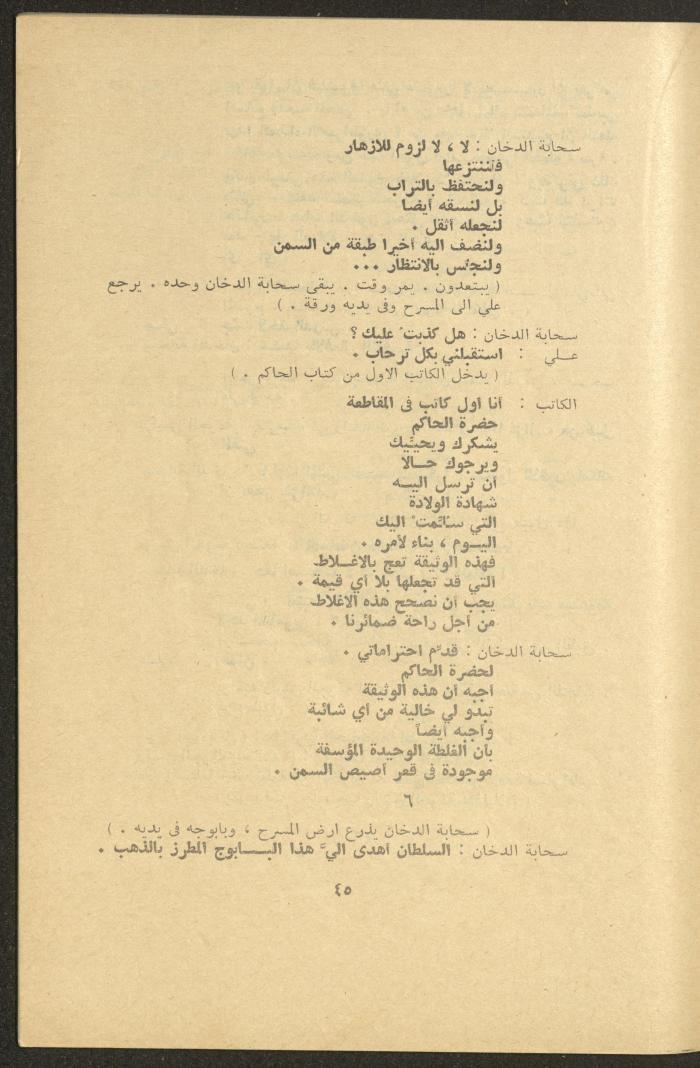 سحابة الدخان : لا ، لا لزوم للازهار
فلننتزعها
ولنحتفظ بالتراب
بل لنسقه أيضا
لنجعله أثقل .
ولنضف اليه أخيرا طبقة من السمن
ولنجلس بالانتظار ...
( يبتعدون . يمر وقت . يبقى سحابة الدخان وحده . يرجع
علي الى المسرح وفى يديه ورقة . )
سحابة الدخان : هل كذبت ْ عليك ؟
عـلـي : استقبلني بكل ترحاب .
( يدخل الكاتب الاول من كتاب الحاكم . )
الكاتب : أنا أول كاتب فى المقاطعة
حضرة الحاكم
يشكرك ويحيّيك
ويرجوك حــالا
أن ترسل اليــه
شهادة الولادة
التي سُلّمت ْ اليك
اليــوم ، بناء لأمره .
فهذه الوثيقة تعج بالاغــلاط
التي قد تجعلها بلا أي قيمة .
يجب أن نصحح هذه الاغلاط
من أجل راحة ضمائرنا .
سحابة الدخان : قدّم احتراماتي .
لحضرة الحاكم
أجبه أن هذه الوثيقة
تبدو لي خالية من أي شائبة
وأجبه أيضاً
بأن الغلطة الوحيدة المؤسفة
موجودة فى قعر أصيص السمن .
٦
( سحابة الدخان يذرع ارض المسرح ، وبابوجه فى يديه . )
سحابة الدخان : السلطان أهدى اليَّ هذا البـــابوج المطرز بالذهب .
٤٥